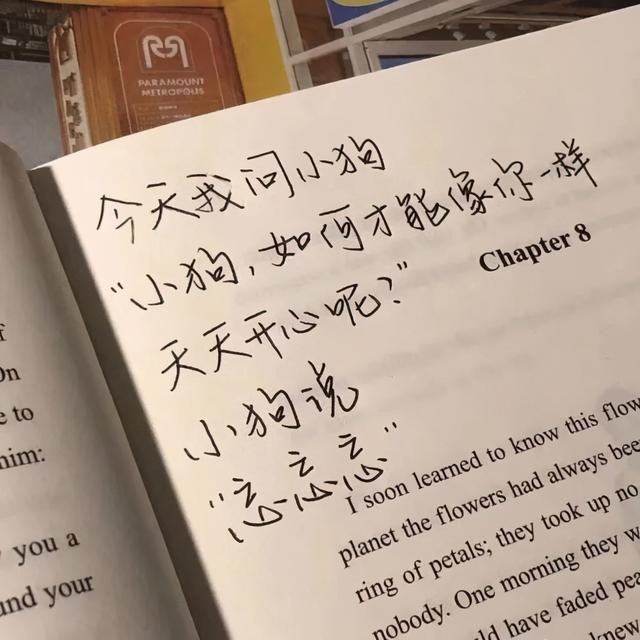 PARAMOUNT
METROPOLIS
今天我问小狗
“小狗,如何才能像你一样
天天开心呢?”
小狗说
“忘忘忘”
Chapter 8
I soon learned to know this flow
planet the flowers had always bee
ring of petals; they took up no
nobody. One morning they w
ld have faded pea
knew
f
On
e to
him:
y you a
und your